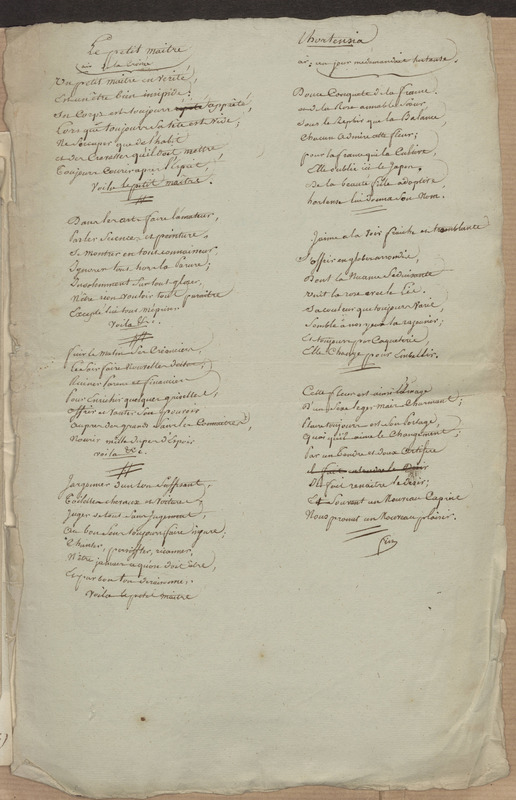 Le petit maitre
air: de la
Un petit maitre en vérité,
est un être bien insipide.
Son Corps est toujours apprêté,
Lors que toujours sa tête est vide;
Ne s'occuper que de l'habit
et des Cravattes qu'il doit mettre
Toujours courir après l'esprit,
Voila le petit maitre.
Dans les arts faire l'amateur,
Parler Science, et peinture,
Se montrer en tout connaisseur,
Ignorer tout hors la parure;
Insolemment sur tout gloser,
N'être rien vouloir tout paraître
Excepté lui tout mépriser
Voila &c.
Fuir le matin des Créanciers,
Le soir faire nouvelles dettes;
Ruiner ferme et financier
Pour Enrichir quelques grisettes,
Offrir et vanter son pouvoir
auprès des grands sans les Connaitre,
Nourir mille dupes d'Espoir
voila &c.
Jargonner d'un ton suffisant,
Coëffure chevaux et voiture,
Juger de tout sans jugement,
au bon ton toujours faire figure;
Chanter, persiffler, ricanner,
N'être jamais a qui on doit être,
Voila le petit maitre
L'hortensia
air: un jour me demandait hortense.
Douce Conquête de la france
et de la Rose aimable Sœur
Sous le Zéphir qui la balance
Chacun admire cette fleur;
pour la france qui la Cultive,
Elle oublie ici le Japon.
De la beauté fille adoptive,
hortense lui donna son Nom.
J'aime a la voir fraiche et tremblante
S'offrir en globe arrondie,
Dont la Nuance séduisante
unit la rose avec le Lis.
Sa couleur que toujours varie,
Semble a nos yeux la rajeunir;
Et toujours par Coqueterie
Elle Change pour s'embellir.
Cette fleur est ainsi l'image
D'un sexe leger mais Charmant;
Plaire toujours est son partage,
Quoi qu'il aime le Changement;
Par un tendre et doux artifice
Il fait renaitre le désir;
Et Souvent un Nouveau Caprice
Nous promet un Nouveau plaisir.
fin